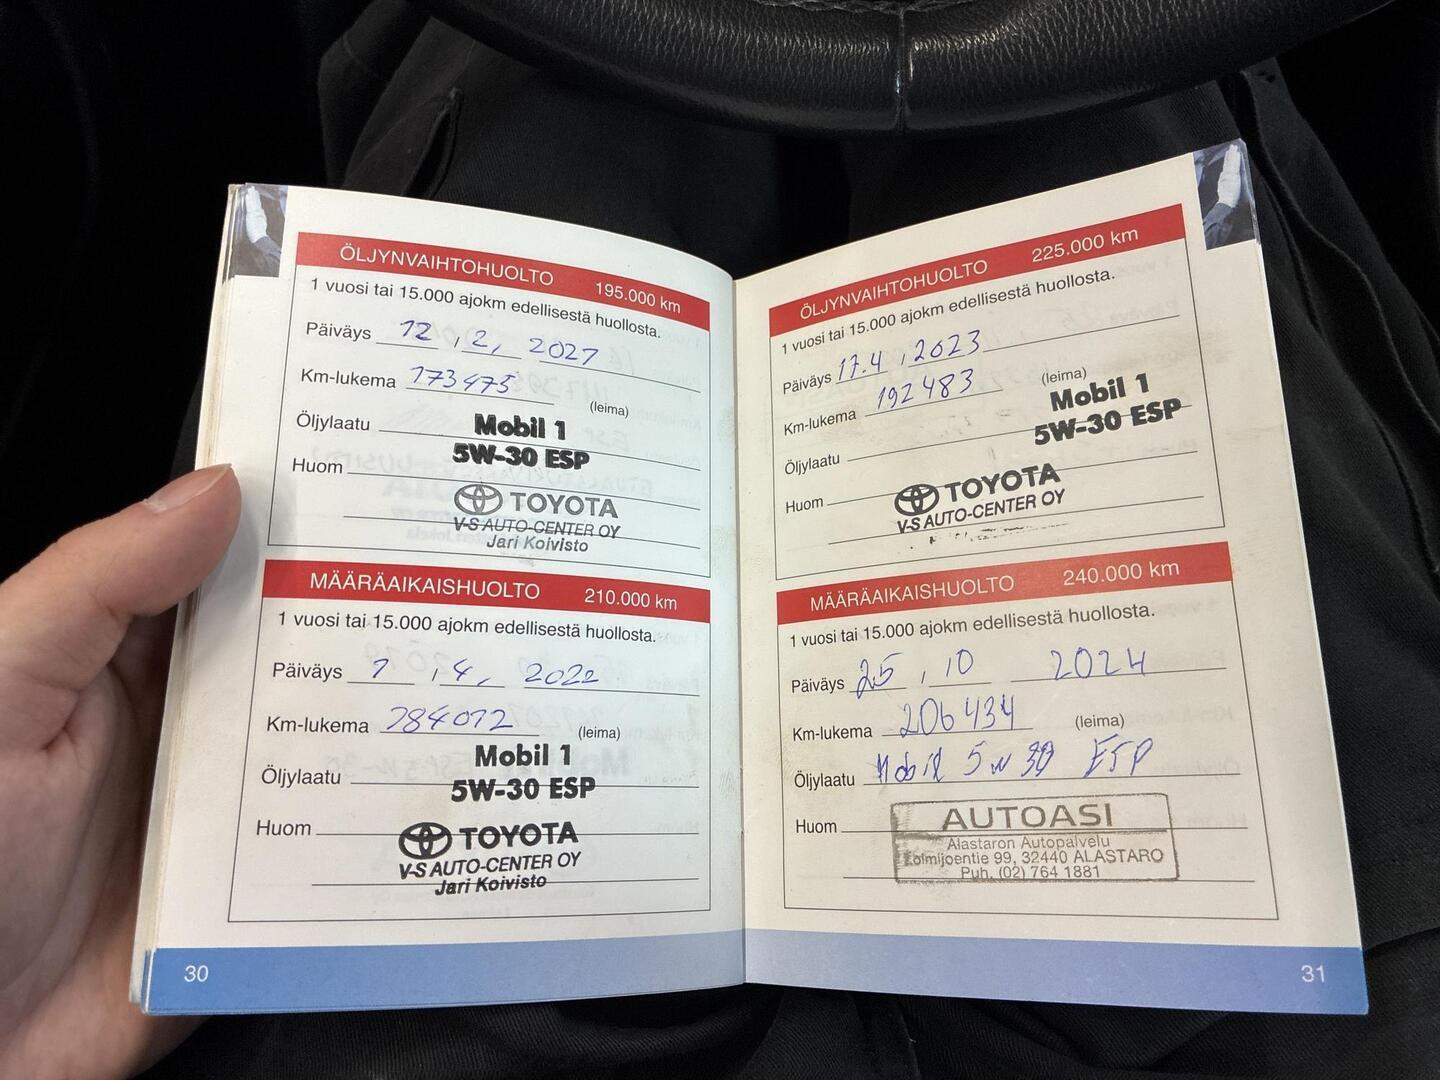 ÖLJYNVAIHTOHUOLTO 195.000 km
1 vuosi tai 15.000 ajokm edellisestä huollosta.
Päiväys 12, 2, 2021
Km-lukema 173475
(leima)
Öljylaatu Mobil 1
5W-30 ESP
Huom
TOYOTA
V-S AUTO-CENTER OY
Jari Koivisto
MÄÄRÄAIKAISHUOLTO 210.000 km
1 vuosi tai 15.000 ajokm edellisestä huollosta.
Päiväys 1, 4, 2022
Km-lukema 184012
(leima)
Öljylaatu Mobil 1
5W-30 ESP
Huom
TOYOTA
V-S AUTO-CENTER OY
Jari Koivisto
30
ÖLJYNVAIHTOHUOLTO 225.000 km
1 vuosi tai 15.000 ajokm edellisestä huollosta.
Päiväys 17.4, 2023
Km-lukema 192483
(leima)
Öljylaatu Mobil 1
5W-30 ESP
Huom
TOYOTA
V-S AUTO-CENTER OY
MÄÄRÄAIKAISHUOLTO 240.000 km
1 vuosi tai 15.000 ajokm edellisestä huollosta.
Päiväys 25, 10 2024
Km-lukema 206434
(leima)
Öljylaatu Mobil 5w30 ESP
Huom
AUTOASI
Alastaron Autopalvelu
Loimijoentie 99, 32440 ALASTARO
Puh. (02) 764 1881
31